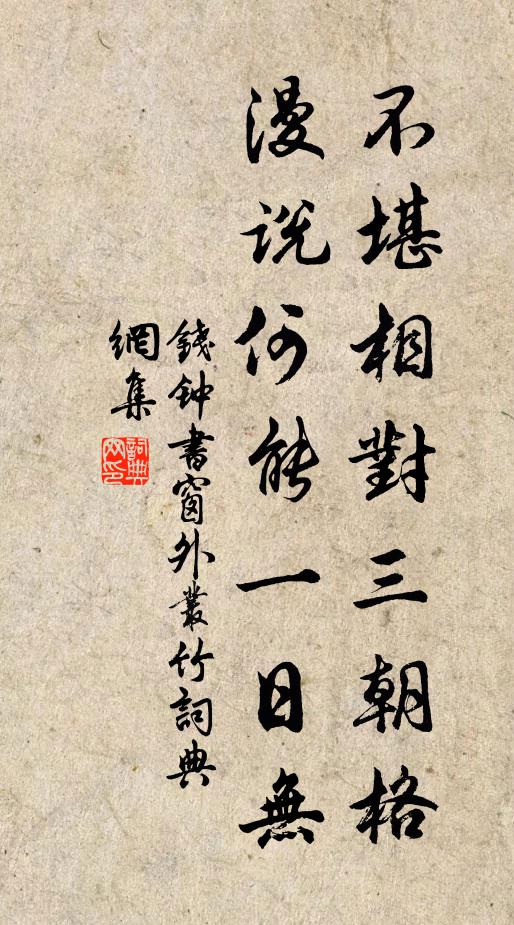 不堪相對三朝格
漫说何能一日無
錢钟書窗外叢竹詞典
網集
詞典
网印